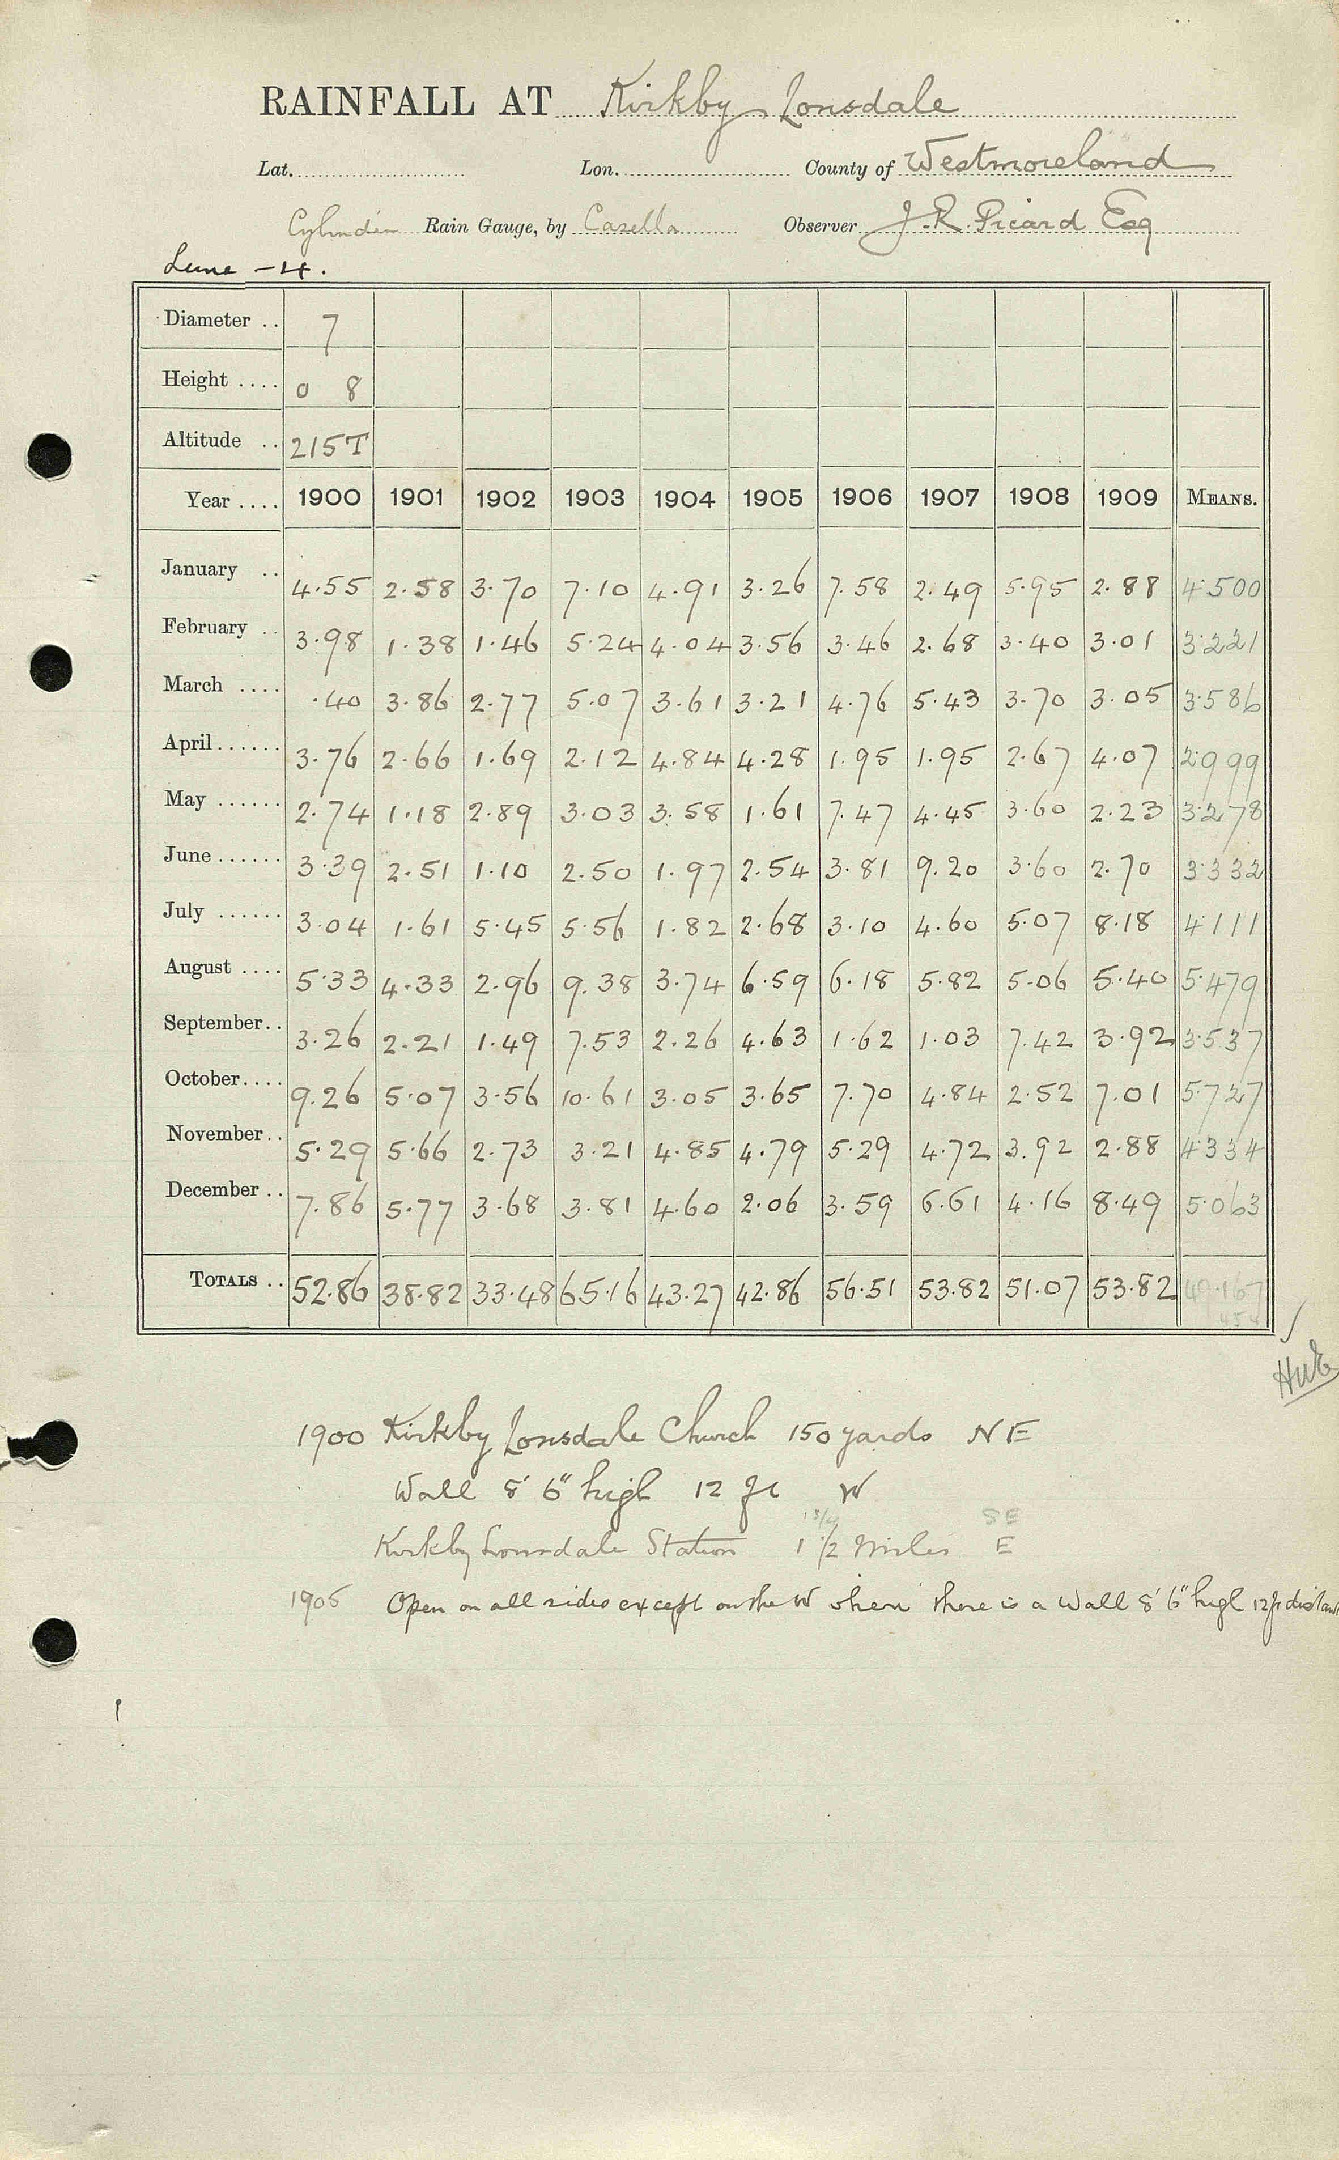 RAINFALL AT Kirkby Lonsdale
Lat. Lon. County of Westmoreland
Cylinder Rain Gauge, by Casella Observer J. R. Picard Esq
Lune - 4.
Diameter .. 7
Height .... 0 8
Altitude .. 215T
Year .... 1900 1901 1902 1903 1904 1905 1906 1907 1908 1909 MEANS.
January .. 4.55 2.58 3.70 7.10 4.91 3.26 7.58 2.49 5.95 2.88 4.500
February .. 3.98 1.38 1.46 5.24 4.04 3.56 3.46 2.68 3.40 3.01 3.221
March .... .40 3.86 2.77 5.07 3.61 3.21 4.76 5.43 3.70 3.05 3.586
April...... 3.76 2.66 1.69 2.12 4.84 4.28 1.95 1.95 2.67 4.07 2.999
May ...... 2.74 1.18 2.89 3.03 3.58 1.61 7.47 4.45 3.60 2.23 3.278
June...... 3.39 2.51 1.10 2.50 1.97 2.54 3.81 9.20 3.60 2.70 3.332
July ...... 3.04 1.61 5.45 5.56 1.82 2.68 3.10 4.60 5.07 8.18 4.111
August .... 5.33 4.33 2.96 9.38 3.74 6.59 6.18 5.82 5.06 5.40 5.479
September.. 3.26 2.21 1.49 7.53 2.26 4.63 1.62 1.03 7.42 3.92 3.537
October.... 9.26 5.07 3.56 10.61 3.05 3.65 7.70 4.84 2.52 7.01 5.727
November.. 5.29 5.66 2.73 3.21 4.85 4.79 5.29 4.72 3.92 2.88 4.334
December .. 7.86 5.77 3.68 3.81 4.60 2.06 3.59 6.61 4.16 8.49 5.063
TOTALS .. 52.86 38.82 33.48 65.16 43.27 42.86 56.51 53.82 51.07 53.82 49.167
1900 Kirkby Lonsdale Church 150 yards NE
Wall 8' 6" high 12 ft W
1 3/4 SE
Kirkby Lonsdale Station 1 1/2 Miles E
1906 Open on all sides except on the W where there is a Wall 8' 6" high 12 ft distant